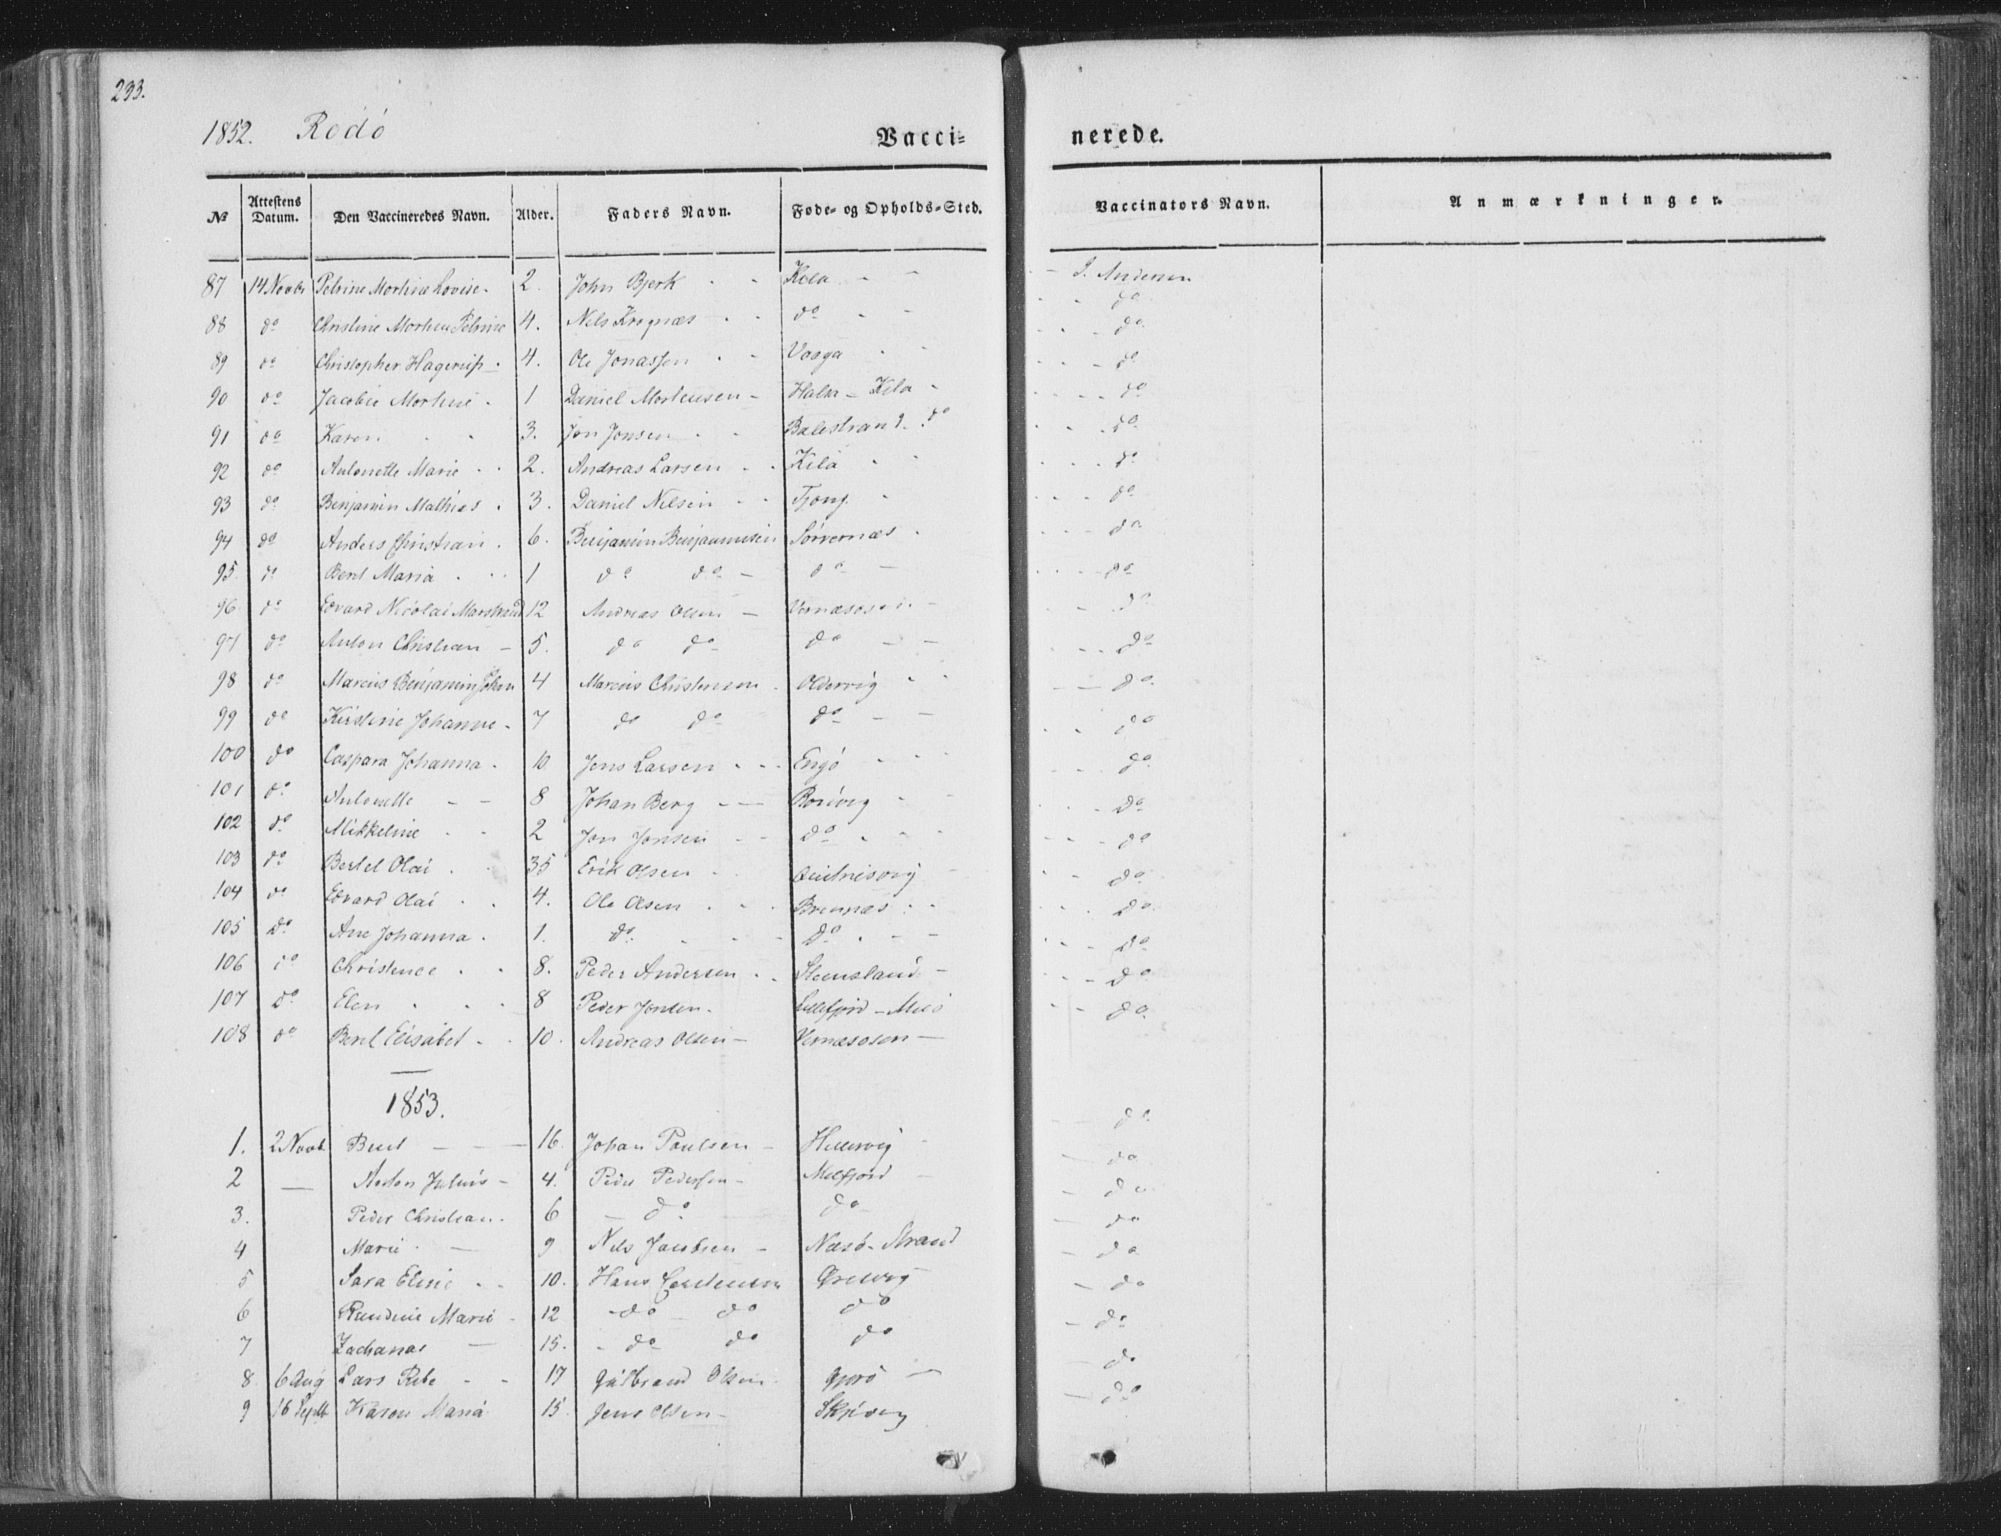 233.
1852. Rödö
Vacci= nerede.
No Attestens Datum. Den Vaccineredes Navn. Alder. Faders Navn. Føde= og Opholds=Sted. Vaccinators Navn. Anmærkninger.
87 14 Novbr Petrine Martine Lovise 2. John Bjerk Kila J. Andersen
88 do Christine Morten Petrine 4. Nils Krognæs do do
89 do Christopher Hagerup 4. Ole Jonassen Vaaga do
90 do Jacobie Mortine 1 Daniel Mortensen Halsa - Kila do
91 do Karen 3. Jon Jonsen Balestrand do do
92 do Antonette Marie 2. Andreas Larsen Kila do
93 do Benjamin Mathias 3. Daniel Nilsen Tjong do
94 do Anders Christian 6. Benjamin Benjaminsen Sørvernæs do
95 do Beret Maria 1 do do do do
96 do Edvard Nicolai Marstrand 12 Andreas Olsen Vernæsosen do
97 do Anton Christian 5. do do do do
98 do Marcus Benjamin Johan 4 Marcus Christensen Oldervig do
99 do Kirstine Johanne 7 do do do do
100 do Caspara Johanna 10 Jens Larsen Engö do
101 do Antonette 8 Johan Berg Rosvig do
102 do Mikkeline 2 Jon Jonsen do do
103 do Bertel Olai 35 Erik Olsen do
104 do Edvard Olai 4. Ole Olsen Brennæs do
105 do Ane Johanna 1. do do do
106 do Christence 8. Peder Andersen Steensland do
107 do Elen 8 Peder Jonsen Lillefjord - Melö do
108 do Beret Elisabet 10. Andreas Olsen Vernæsosen do
1853.
1. 2 Novb. Berit 16. Johan Paulsen Hellervig do
2 — Anton Julius 4. Peder Pedersen Melfjord do
3. Peder Christian 6 do do do
4 Marie 9 Nils Jacobsen Næsö - Strand do
5 Sara Elise 10. Hans Carstensen Øresvig do
6 Randine Marie 12 do do do do
7 Zacharias 15. do do do do
8 6 Aug Lars Ribe 17 Gulbrand Olsen Gjerö do
9 16 Septb Karen Maria 15. Jens Olsen Skjevig do